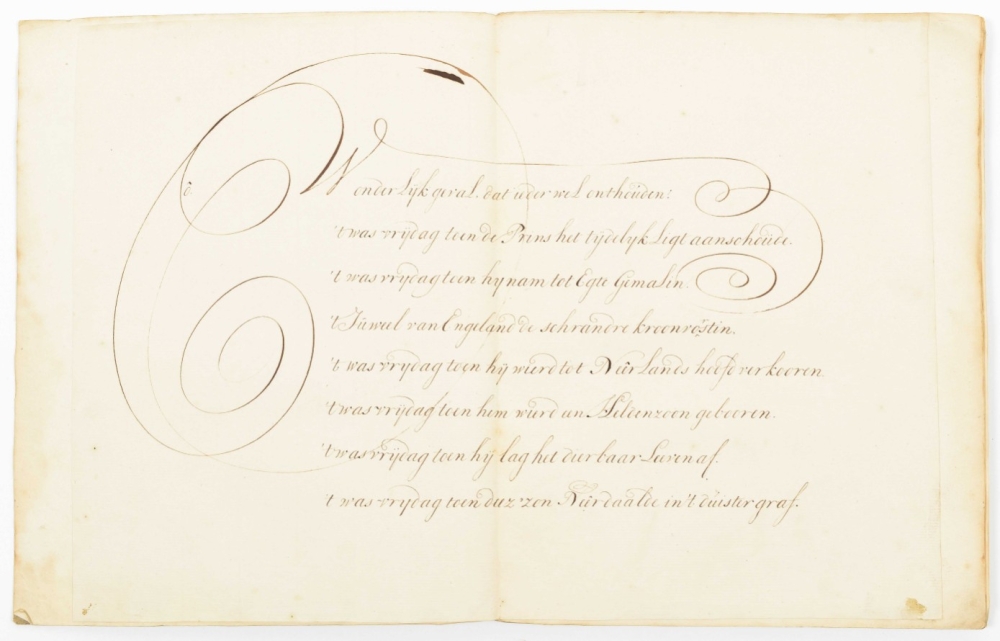 Wonderlijk geval. dat ieder wel onthouden:
't was vrijdag toen de Prins het tijdelyk Ligt aanschoude.
't was vrijdag toen hij nam tot Egte Gemalin.
't Juweel van Engeland de schrandre kroonvostin.
't was vrijdag toen hij wierd tot Neêrlands hoofd verkooren
't was vrijdag toen hem wierd een Heldenzoon gebooren.
't was vrijdag toen hij lag het dierbaar Leeven af.
't was vrijdag toen dez' zon Neêrdaalde in 't duister graf.